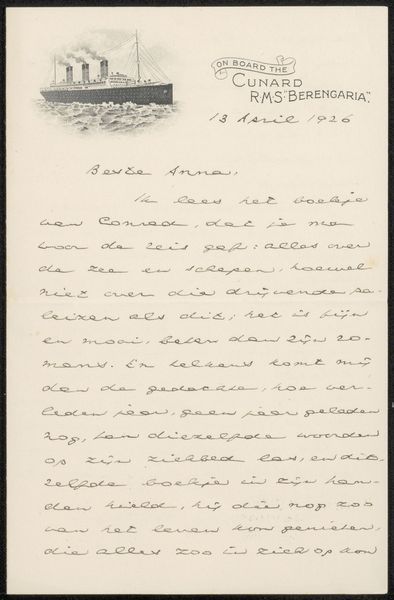 ON BOARD THE
CUNARD
R.M.S. "BERENGARIA".
13 April 1926
Beste Anna,
Ik lees het boekje
van Conrad, dat je me
voor de reis gaf: alles over
de zee en schepen, hoewel
niet over die drijvende pa-
leizen als dit; het is fijn
en mooi, beter dan zijn ro-
mans. En telkens komt mij
dan de gedachte, hoe ver-
leden jaar, geen jaar geleden
nog, Jan diezelfde woorden
op zijn ziekbed las, en dit-
zelfde boekje in zijn han-
den hield, hij die nog zoo
van het leven kon genieten,
die alles zoo in zich op kon